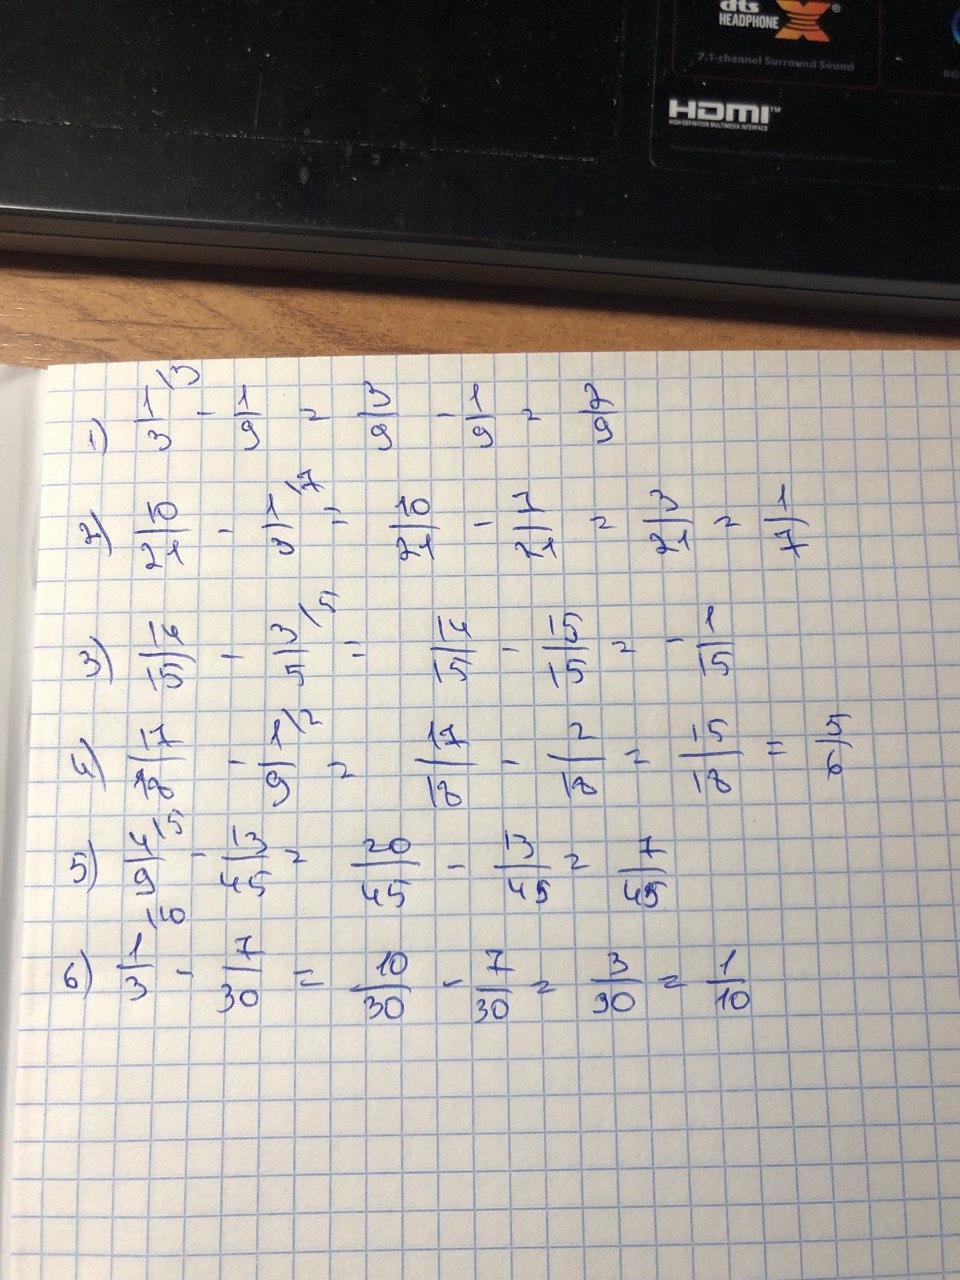 dts
HEADPHONE X®
7.1-channel Surround Sound
HDMI™
HIGH-DEFINITION MULTIMEDIA INTERFACE
1) 1/3 \3 - 1/9 = 3/9 - 1/9 = 2/9
2) 10/21 - 1/3 \7 = 10/21 - 7/21 = 3/21 = 1/7
3) 14/15 - 3/5 \5 = 14/15 - 15/15 = - 1/15
4) 17/18 - 1/9 \2 = 17/18 - 2/18 = 15/18 = 5/6
5) 4/9 \5 - 13/45 = 20/45 - 13/45 = 7/45
6) 1/3 \10 - 7/30 = 10/30 - 7/30 = 3/30 = 1/10